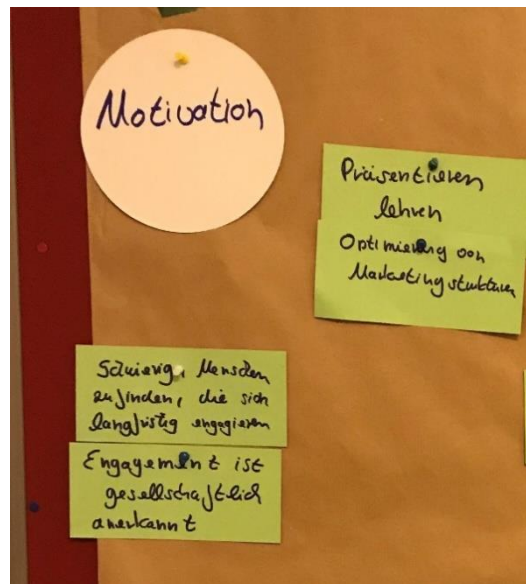 Motivation
Präsentieren
lehren
Optimierung von
Marketingstrukturen
Schwierig, Menschen
zu finden, die sich
langfristig engagieren
Engagement ist
gesellschaftlich
anerkannt